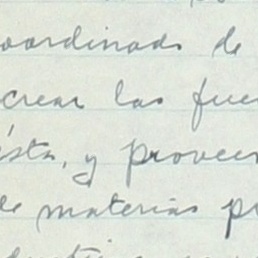 coordinado de
crear las fuer
ista, y proveer
de materias pr